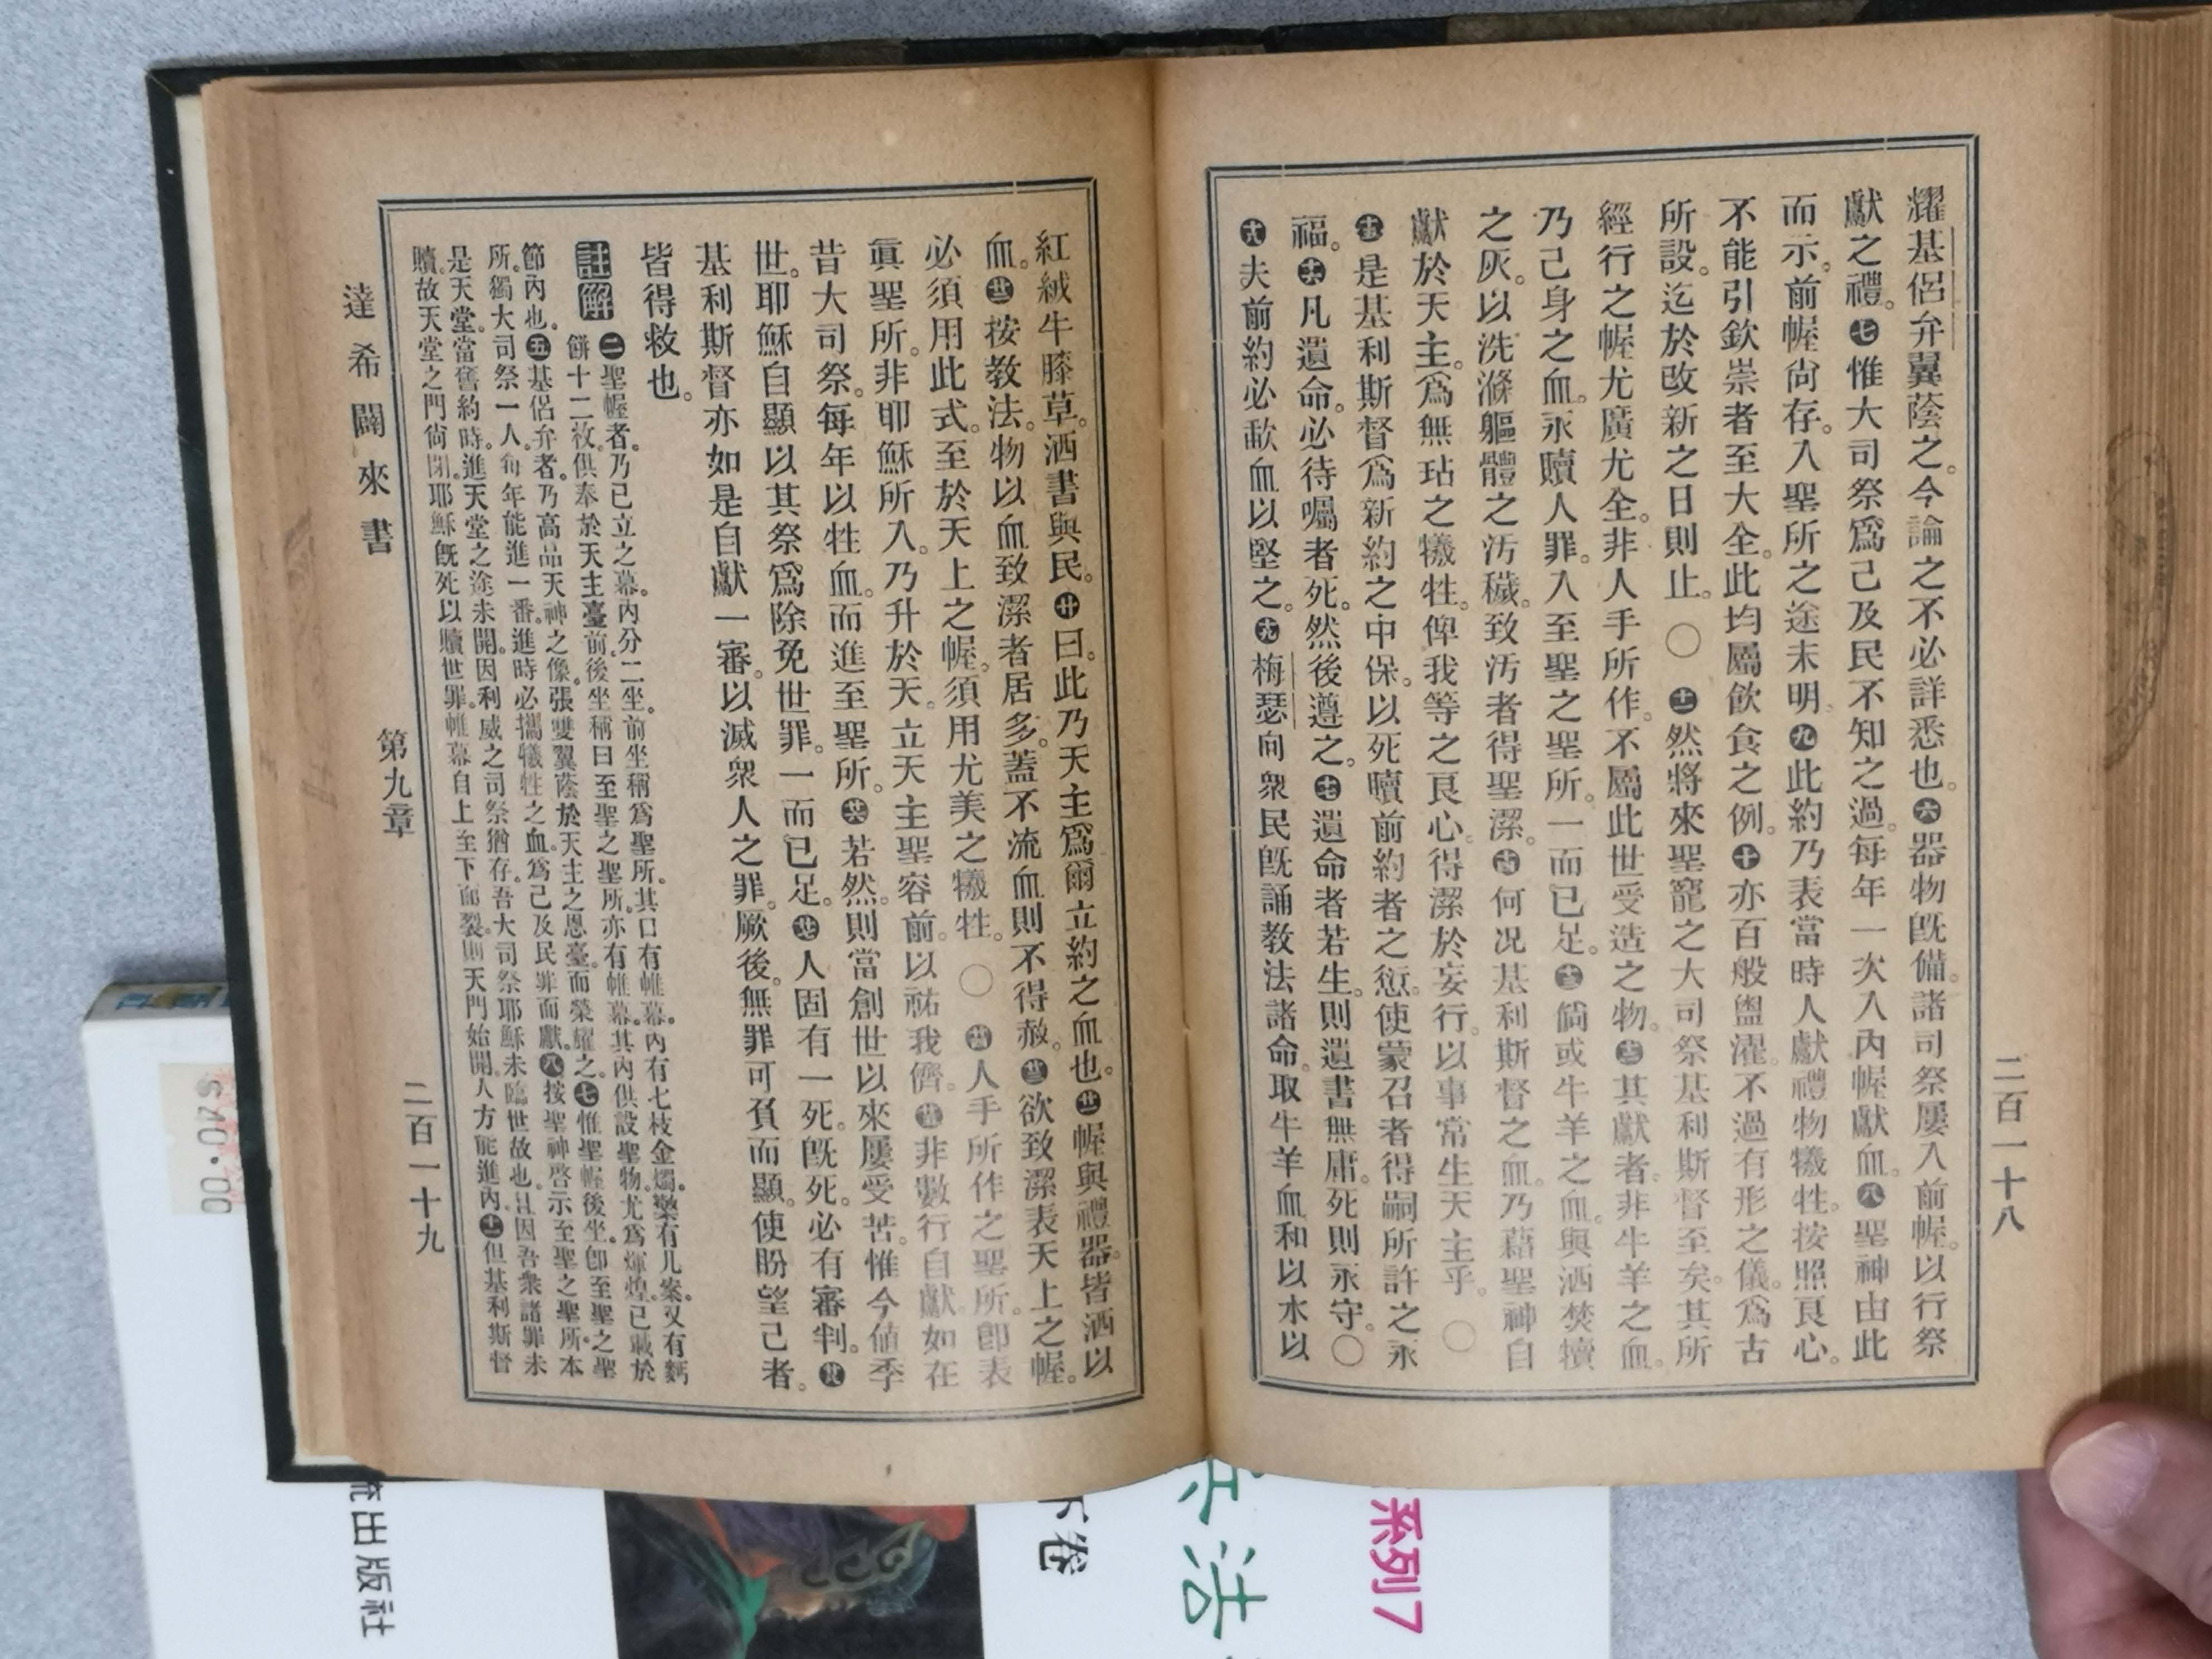 耀基侶弁翼蔭之。今論之不必詳悉也。㊅器物旣備。諸司祭屢入前幄。以行祭
獻之禮。㊆惟大司祭爲己及民不知之過。每年一次入內幄獻血。㊇聖神由此
而示。前幄尙存。入聖所之途未明。㊈此約乃表當時人獻禮物犧牲。按照良心。
不能引欽崇者至大全。此均屬飮食之例。㊉亦百般盥濯。不過有形之儀。爲古
所設。迄於改新之日則止。〇十一然將來聖寵之大司祭基利斯督至矣。其所
經行之幄尤廣尤全。非人手所作。不屬此世受造之物。十二其獻者。非牛羊之血。
乃己身之血。永贖人罪。入至聖之聖所。一而已足。十三倘或牛羊之血。與洒焚犢
之灰。以洗滌軀體之汚穢。致汚者得聖潔。十四何况基利斯督之血。乃藉聖神自
獻於天主。爲無玷之犧牲。俾我等之良心。得潔於妄行。以事常生天主乎。〇
十五是基利斯督爲新約之中保。以死贖前約者之愆。使蒙召者得嗣所許之永
福。十六凡遺命。必待囑者死。然後遵之。十七遺命者若生。則遺書無庸。死則永守。〇
十八夫前約必歃血以堅之。十九梅瑟向衆民旣誦敎法諸命。取牛羊血和以水以
二百一十八
紅絨牛膝草。洒書與民。廿曰。此乃天主爲爾立約之血也。廿一幄與禮器。皆洒以
血。廿二按敎法。物以血致潔者居多。蓋不流血則不得赦。廿三欲致潔表天上之幄。
必須用此式。至於天上之幄。須用尤美之犧牲。〇廿四人手所作之聖所。卽表
眞聖所。非耶穌所入。乃升於天。立天主聖容前。以祐我儕。廿五非數行自獻。如在
昔大司祭。每年以牲血。而進至聖所。廿六若然。則當創世以來屢受苦。惟今値季
世。耶穌自顯以其祭爲除免世罪。一而已足。廿七人固有一死。旣死。必有審判。廿八
基利斯督亦如是自獻一審。以滅衆人之罪。厥後。無罪可負而顯。使盼望己者。
皆得救也。
註解 ㊁聖幄者。乃已立之幕。內分二坐。前坐稱爲聖所。其口有帷幕。內有七枝金燭檠。有几案。又有麪
餅十二枚。俱奉於天主臺前。後坐稱曰至聖之聖所。亦有帷幕。其內俱設聖物。尤爲煇煌。已載於
節內也。㊄基侶弁者。乃高品天神之像。張雙翼蔭於天主之恩臺。而榮耀之。㊆惟聖幄後坐。卽至聖之聖
所。獨大司祭一人。每年能進一番。進時必攜犧牲之血。爲己及民罪而獻。㊇按聖神啓示至聖之聖所。本
是天堂。當舊約時。進天堂之途未開。因利威之司祭猶存。吾大司祭耶穌未臨世故也。且因吾衆諸罪未
贖。故天堂之門尙閉。耶穌旣死以贖世罪。帷幕自上至下而裂。則天門始開。人方能進內。十一但基利斯督
達希闢來書 第九章 二百一十九
$40.00
出版社
下卷
兵法
系列7